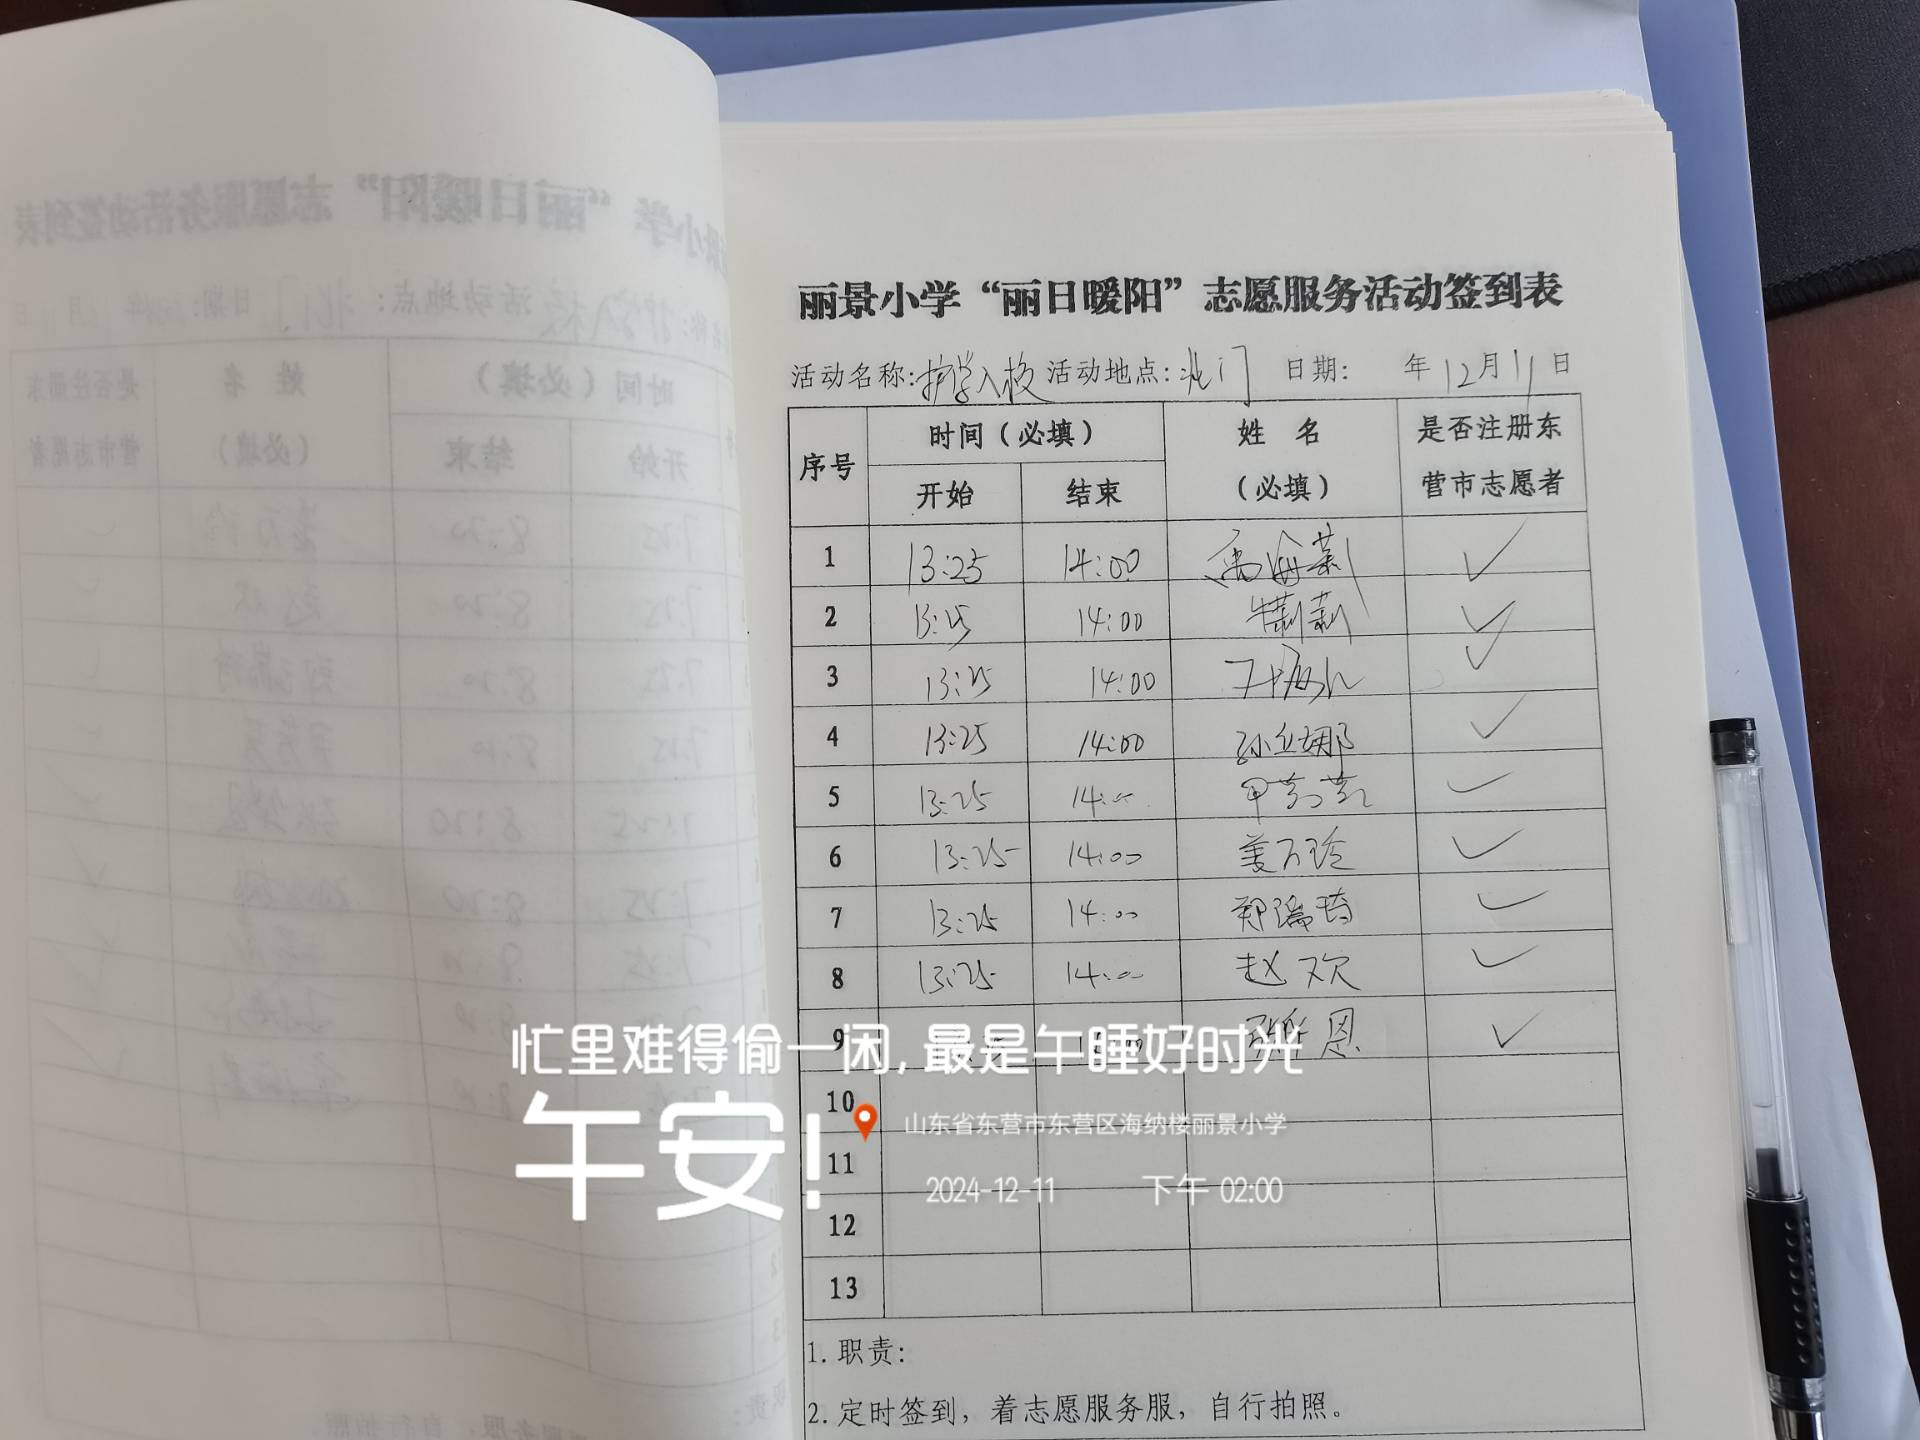 丽景小学“丽日暖阳”志愿服务活动签到表
活动名称:护学入校 活动地点:北门 日期: 年12月11日
序号 时间(必填) 姓 名 是否注册东
开始 结束 (必填) 营市志愿者
1 13:25 14:00 ✓
2 13:25 14:00 莉莉 ✓
3 13:25 14:00 ✓
4 13:25 14:00 孙立娜 ✓
5 13:25 14:00 ✓
6 13:25 14:00 姜万玲 ✓
7 13:25 14:00 郑瑞琦 ✓
8 13:25 14:00 赵欢 ✓
9 恩 ✓
10
11
12
13
1. 职责:
2. 定时签到，着志愿服务服，自行拍照。
忙里难得偷一闲,最是午睡好时光
午安!
山东省东营市东营区海纳楼丽景小学
2024-12-11 下午 02:00